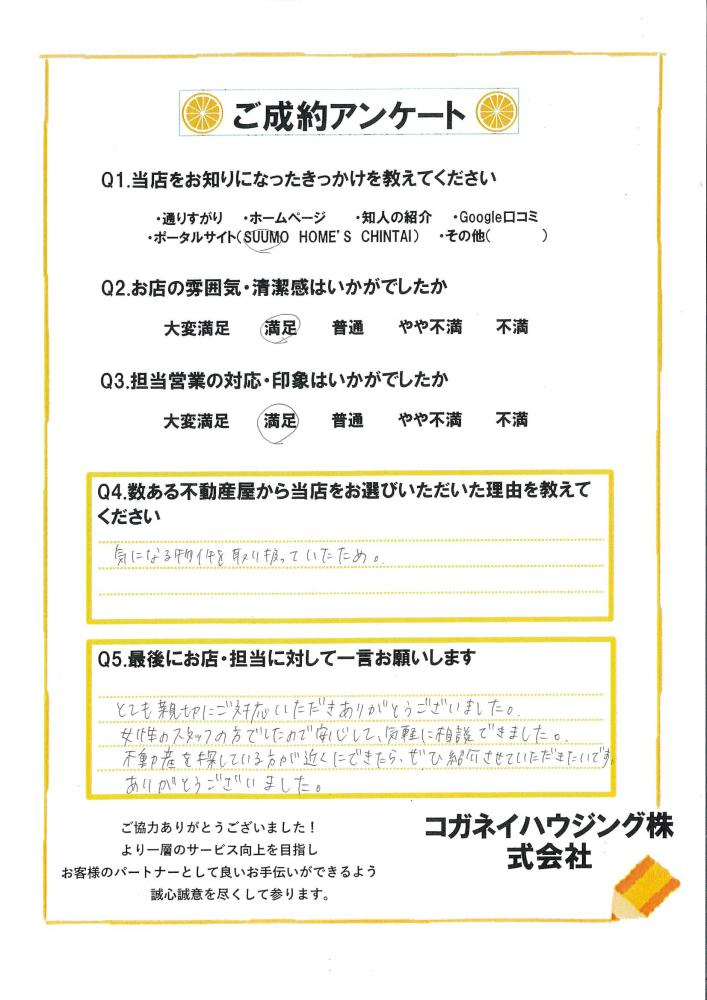 ご成約アンケート
Q1.当店をお知りになったきっかけを教えてください
・通りすがり ・ホームページ ・知人の紹介 ・Google口コミ
・ポータルサイト(SUUMO HOME'S CHINTAI) ・その他( )
Q2.お店の雰囲気・清潔感はいかがでしたか
大変満足 満足 普通 やや不満 不満
Q3.担当営業の対応・印象はいかがでしたか
大変満足 満足 普通 やや不満 不満
Q4.数ある不動産屋から当店をお選びいただいた理由を教えて
ください
気になる物件を取り扱っていたため。
Q5.最後にお店・担当に対して一言お願いします
とても親切にご対応いただきありがとうございました。
女性のスタッフの方でしたので安心して、気軽に相談できました。
不動産を探している方が近くにできたら、ぜひ紹介させていただきたいです。
ありがとうございました。
ご協力ありがとうございました！
より一層のサービス向上を目指し
お客様のパートナーとして良いお手伝いができるよう
誠心誠意を尽くして参ります。
コガネイハウジング株
式会社